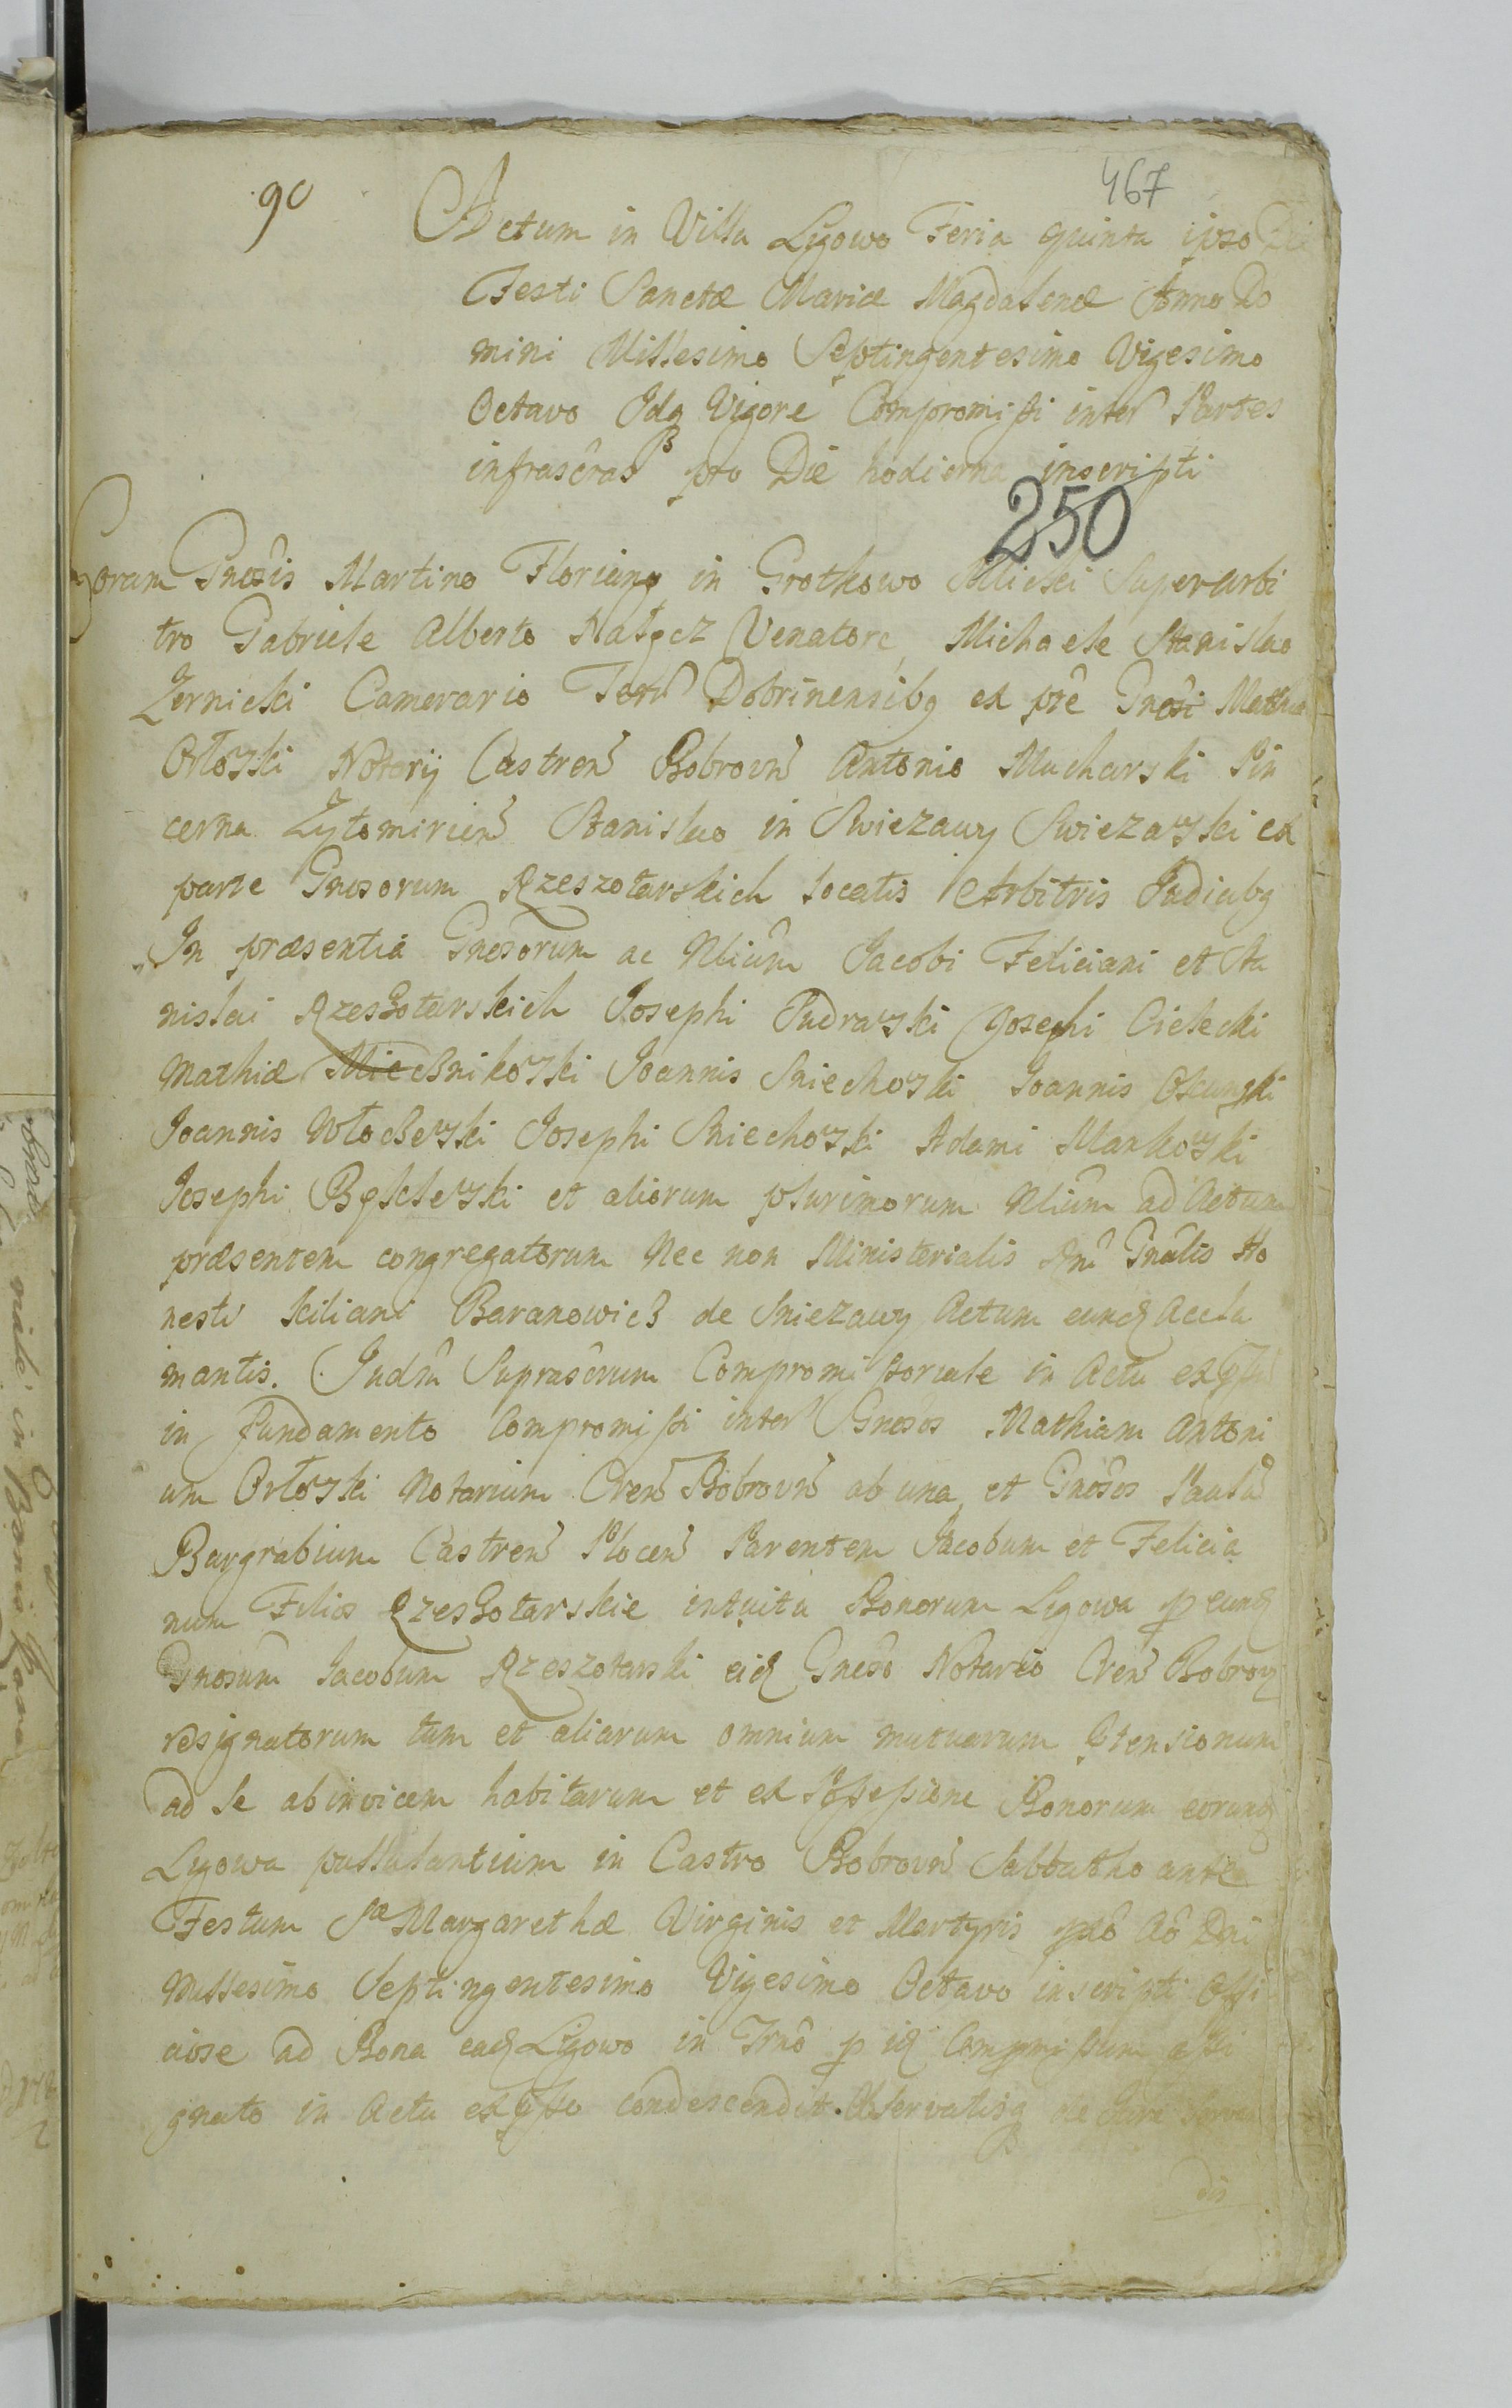 90
467
Actum in Villa Ligowo Feria quinta ipso Die
Festi Sanctæ Mariæ Magdalenæ Anno Do
mini Millesimo Septingentesimo Vigesimo
Octavo Idq Vigore Compromissi inter Partes
infrascras pro Die hodierna inscripti
250
Coram Gnosis Martino Floriano in Grotkowo Milicki Superarbi
tro Gabriele Alberto Nałęcz Venatore, Michaele Stanislao
Zernicki Camerario Terr Dobrinensibq ex pte Gnosi Mathiæ
Orłoski Notarij Castren Bobrovn Antonio Mucharski Pin
cerna Zytomirien Stanislao in Swiezawy Swiezawski ex
parte Gnosorum Rzeszotarskich locatis Arbitris Judicibq
In præsentia Gnosorum ac Nlium Jacobi Feliciani et Sta
nislai Rzeszotarskich Josephi Pudrawski Josephi Cielecki
Mathiæ Joannis Sniechowski Joannis
Joannis Włoczewski Josephi Sniechowski Adami Markowski
Josephi et aliorum plurimorum Nlium ad Actum
præsentem congregatorum Nec non Ministerialis Rni Gnalis Ho
nesti Kiliani Baranowicz de Sniezawy Actum eunq Accla
mantis. Judm Suprascrum Compromissoriale in Actu exqsu
in fundamento Compromissi inter Gnosos Mathiam Antoni
um Orłoski Notarium Cren Bobrovn ab una, et Gnosos Paulu
Burgrabium Castren Plocen Parentem Jacobum et Felicia
num Filios Rzeszotarskie intuitu Bonorum Ligowa p eunq
Gnosum Jacobum Rzeszotarski eiq Gnoso Notario Cren Bobrov
resignatorum tum et aliarum omnium mutuarum Ptensionum
ad se abinvicem habitarum et ex Possessione Bonorum eorunq
Ligowa pullulantium in Castro Bobrovn Sabbatho ante
Festum Sæ Margarethæ Virginis et Martyris pto Ao Dni
Millesimo Septingentesimo Vigesimo Octavo inscripti Offi
ciose ad Bona eaq Ligowo in Trno p iq Compmissum assi
gnato in Actu exqsso condescendit. Observatisq de Jure servan
dis